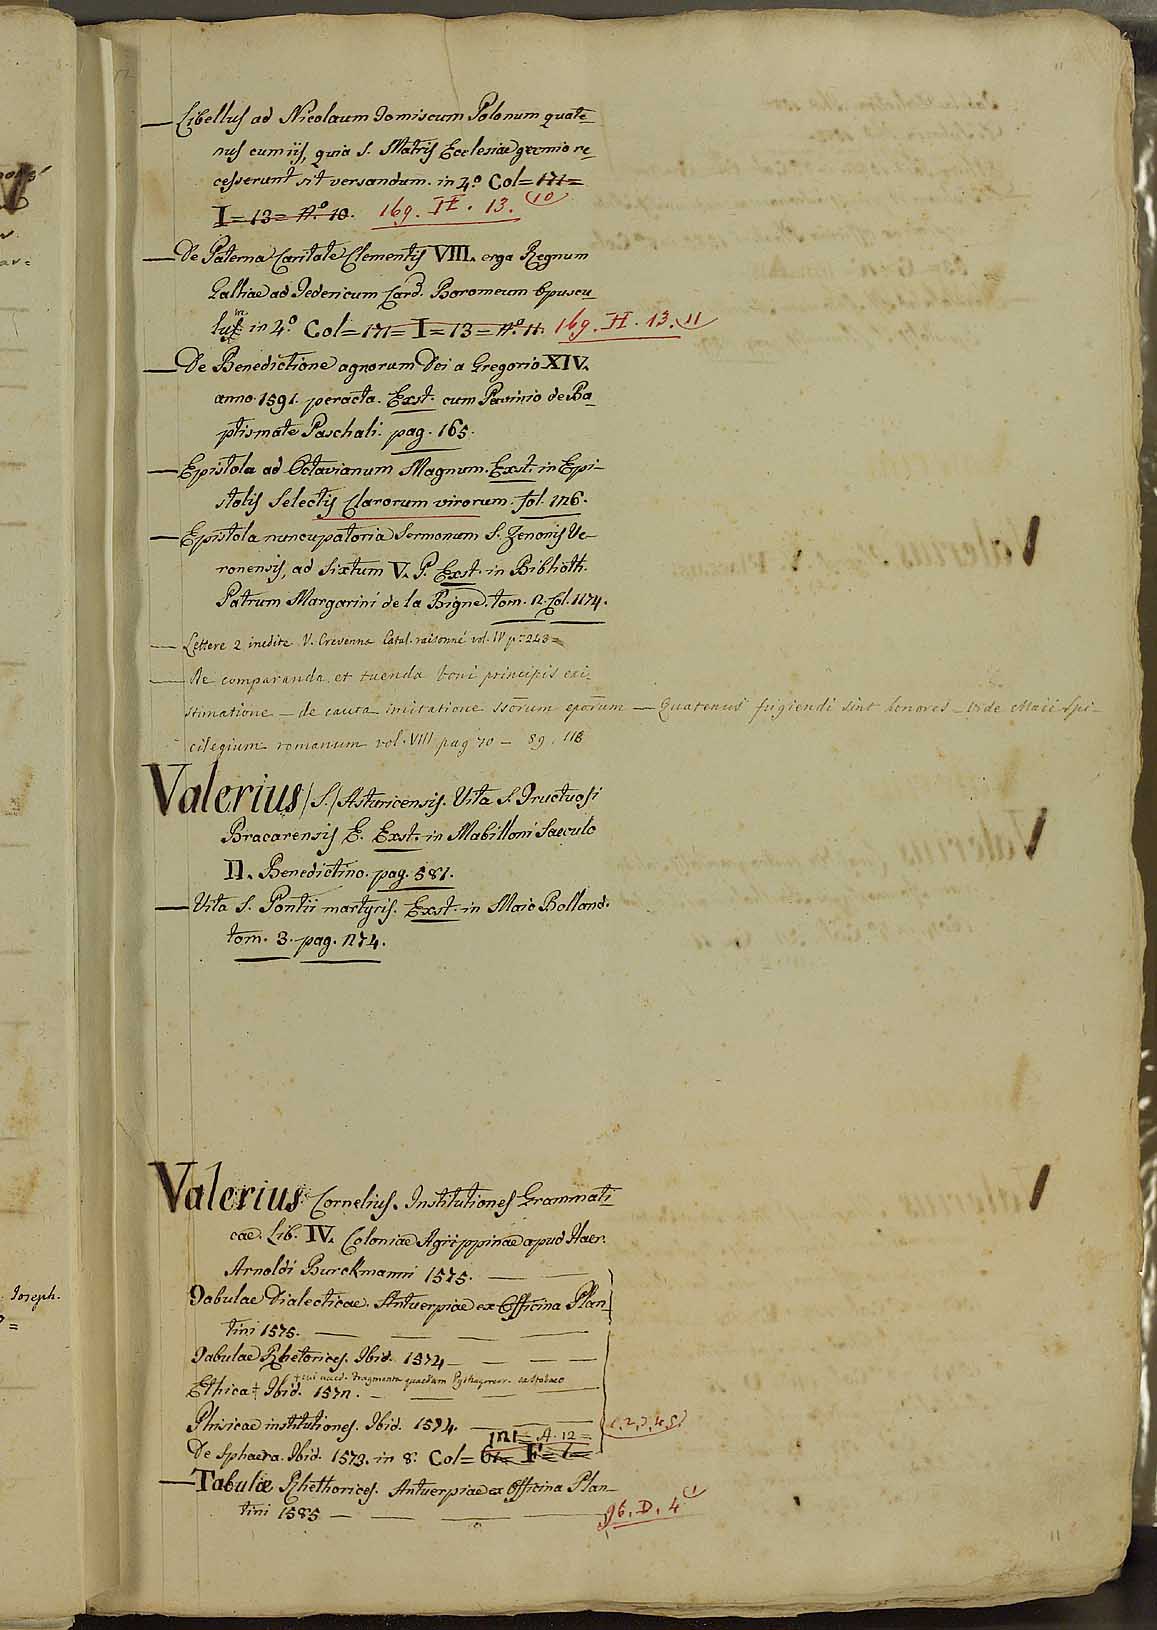 — Libellus ad Nicolaum Domiscum Polonum quate=
nus cum iis, quia S. Matris Ecclesiae gremio re=
cesserunt sit versandum. in 4.º Col= 171=
I = 13 = N.º 10. 169. II. 13. (10)
— De Paterna Caritate Clementis VIII. erga Regnum
Galliae ad Federicum Card. Boromeum Opuscu
lus in 4.º Col= 171= I = 13 = N.º 11. 169. II. 13. 11
— De Benedictione agnorum Dei a Gregorio XIV.
anno 1591. peracta. Exst. cum Paninio de Ba=
ptismate Paschali. pag. 165.
— Epistola ad Octavianum Magnum. Exst. in Epi-
stolis Selectis Clarorum virorum. fol. 126.
— Epistola nuncupatoria Sermonum S. Zenonis Ve-
ronensis, ad Sixtum V. P. Exst. in Biblioth.
Patrum Margarini de la Bigne. tom. 2. Col. 1174.
— Lettere 2 inedite V. Crevenna Catal. raisonné vol. IV p. 243=
— De comparanda et tuenda boni principis exi-
stimatione — de cauta imitatione ssorum eporum — Quatenus fugiendi sint honores — V. de Maii Spi-
cilegium romanum vol. VIII pag 70 — 89. 118
Valerius /S./ Asturicensis. Vita S. Fructuosi
Bracarensis E. Exst. in Mabilloni Saeculo
II. Benedictino. pag. 581.
— Vita S. Pontii martyris. Exst. in Maio Bolland.
tom. 3. pag. 274.
Valerius Cornelius. Institutiones Grammati=
cae. Lib. IV. Coloniae Agrippinae apud Haer.
Arnoldi Burckmanni 1575. — —
Tabulae Dialecticae. Antuerpiae ex Officina Plan
tini 1575. — — — —
Tabulae Rhetorices. Ibid. 1574 — — — —
+ cui acced. Fragmenta quaedam Pythagoreor.
Ethica + Ibid. 1572. — — —
Phisicae institutiones. Ibid. 1574. — — 1.2.3.4.5.
121 = A. 12 =
De Sphaera. Ibid. 1573. in 8. Col= 61= F= 1=
— Tabulæ Rhethorices. Antuerpiae ex Officina Plan-
tini 1585 — — — — 96. D. 4 (1
Joseph.
11